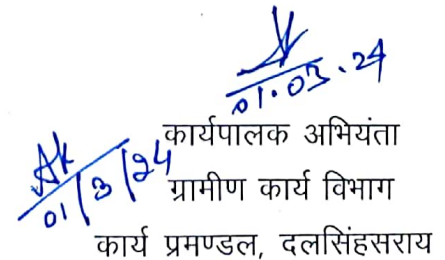 01.03.24
Ak
01/3/24
कार्यपालक अभियंता
ग्रामीण कार्य विभाग
कार्य प्रमण्डल, दलसिंहसराय